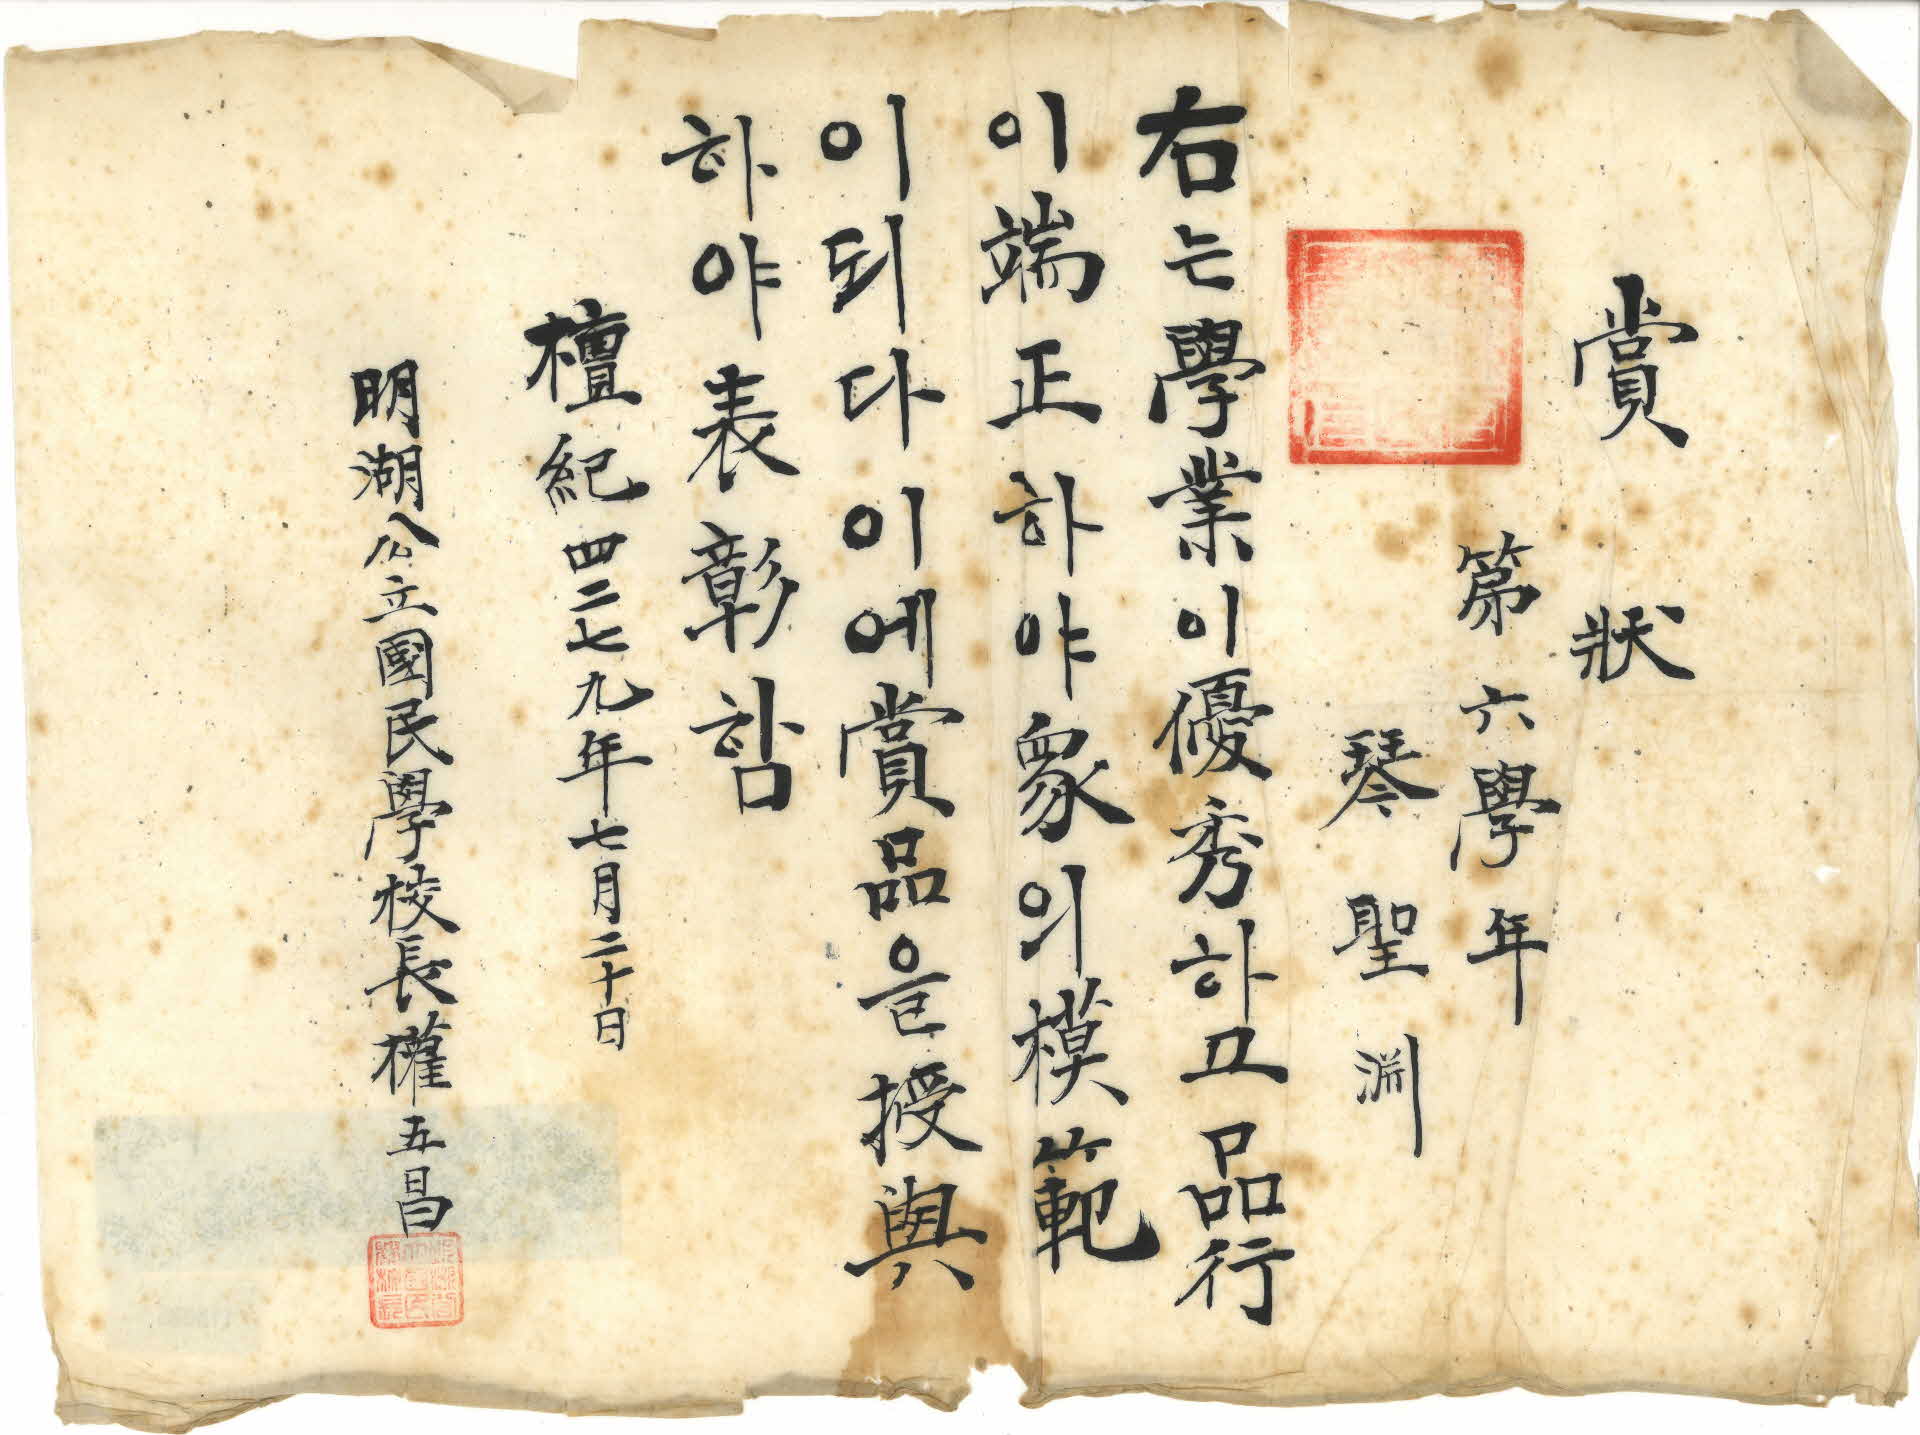 賞狀
第六學年
琴聖淵
右는學業이優秀하고品行
이端正하야衆의模範
이되다이에賞品을授與
하야表彰함
檀紀四二七九年七月二十日
明湖公立國民學校長權五昌